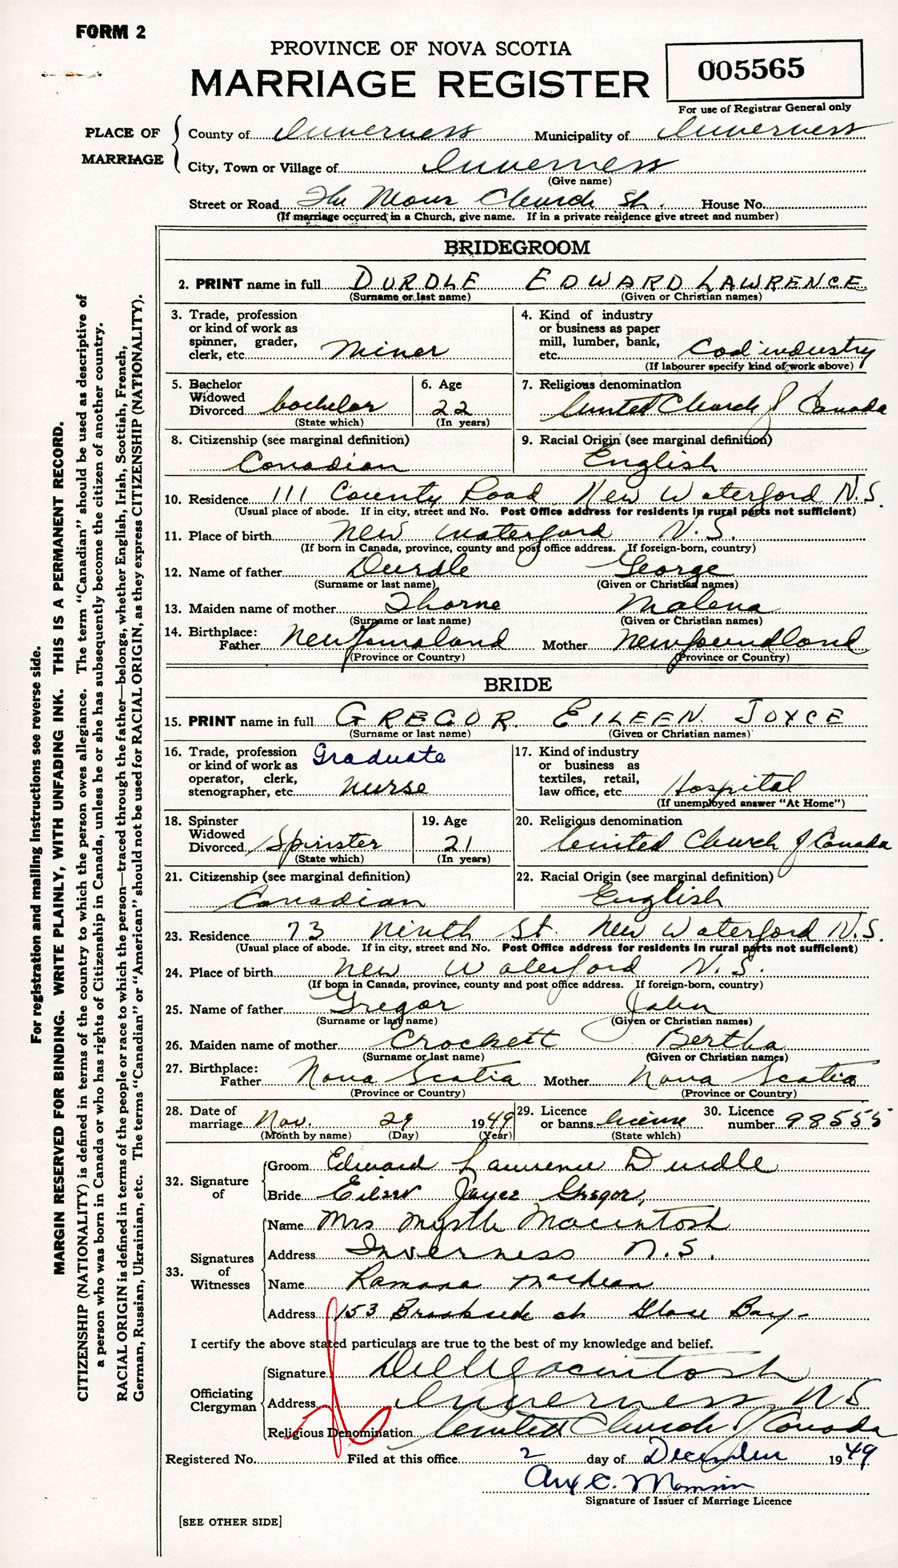 FORM 2
PROVINCE OF NOVA SCOTIA
MARRIAGE REGISTER
005565
For use of Registrar General only
PLACE OF MARRIAGE
County of Inverness Municipality of Inverness
City, Town or Village of Inverness
(Give name)
Street or Road The Manse Church St. House No.
(If marriage occurred in a Church, give name. If in a private residence give street and number)
BRIDEGROOM
2. PRINT name in full DURDLE EDWARD LAWRENCE
(Surname or last name) (Given or Christian names)
3. Trade, profession or kind of work as spinner, grader, clerk, etc. Miner
4. Kind of industry or business as paper mill, lumber, bank, etc. Coal industry
(If labourer specify kind of work above)
5. Bachelor Widowed Divorced bachelor
(State which)
6. Age 22
(In years)
7. Religious denomination United Church of Canada
8. Citizenship (see marginal definition) Canadian
9. Racial Origin (see marginal definition) English
10. Residence 111 County Road New Waterford N.S.
(Usual place of abode. If in city, street and No. Post Office address for residents in rural parts not sufficient)
11. Place of birth New Waterford N.S.
(If born in Canada, province, county and post office address. If foreign-born, country)
12. Name of father Durdle George
(Surname or last name) (Given or Christian names)
13. Maiden name of mother Thorne Malena
(Surname or last name) (Given or Christian names)
14. Birthplace: Father Newfoundland Mother Newfoundland
(Province or Country) (Province or Country)
BRIDE
15. PRINT name in full GREGOR EILEEN JOYCE
(Surname or last name) (Given or Christian names)
16. Trade, profession or kind of work as operator, clerk, stenographer, etc. Graduate nurse
17. Kind of industry or business as textiles, retail, law office, etc. Hospital
(If unemployed answer "At Home")
18. Spinster Widowed Divorced Spinster
(State which)
19. Age 21
(In years)
20. Religious denomination United Church of Canada
21. Citizenship (see marginal definition) Canadian
22. Racial Origin (see marginal definition) English
23. Residence 73 Ninth St. New Waterford N.S.
(Usual place of abode. If in city, street and No. Post Office address for residents in rural parts not sufficient)
24. Place of birth New Waterford N.S.
(If born in Canada, province, county and post office address. If foreign-born, country)
25. Name of father Gregor John
(Surname or last name) (Given or Christian names)
26. Maiden name of mother Crockett Bertha
(Surname or last name) (Given or Christian names)
27. Birthplace: Father Nova Scotia Mother Nova Scotia
(Province or Country) (Province or Country)
28. Date of marriage Nov. 29 1949
(Month by name) (Day) (Year)
29. Licence or banns license
(State which)
30. Licence number 98555
32. Signature of
Groom Edward Lawrence Durdle
Bride Eileen Joyce Gregor
33. Signatures of Witnesses
Name Mrs Myrtle Macintosh
Address Inverness N.S.
Name Ramona MacLean
Address 153 Brookside st Glace Bay
I certify the above stated particulars are true to the best of my knowledge and belief.
Officiating Clergyman
Signature Macintosh
Address Inverness NS
Religious Denomination United Church of Canada
Registered No. Filed at this office 2 day of December 1949
C.
Signature of Issuer of Marriage Licence
[SEE OTHER SIDE]
For registration and mailing instructions see reverse side.
MARGIN RESERVED FOR BINDING. WRITE PLAINLY, WITH UNFADING INK. THIS IS A PERMANENT RECORD.
CITIZENSHIP (NATIONALITY) is defined in terms of the country to which the person owes allegiance. The term "Canadian" should be used as descriptive of
a person who was born in Canada or who has rights of Citizenship in Canada, unless he or she has subsequently become the citizen of another country.
RACIAL ORIGIN is defined in terms of the people or race to which the person—traced through the father—belongs, whether English, Irish, Scottish, French,
German, Russian, Ukrainian, etc. The terms "Canadian" or "American" should not be used for RACIAL ORIGIN, as they express CITIZENSHIP (NATIONALITY).